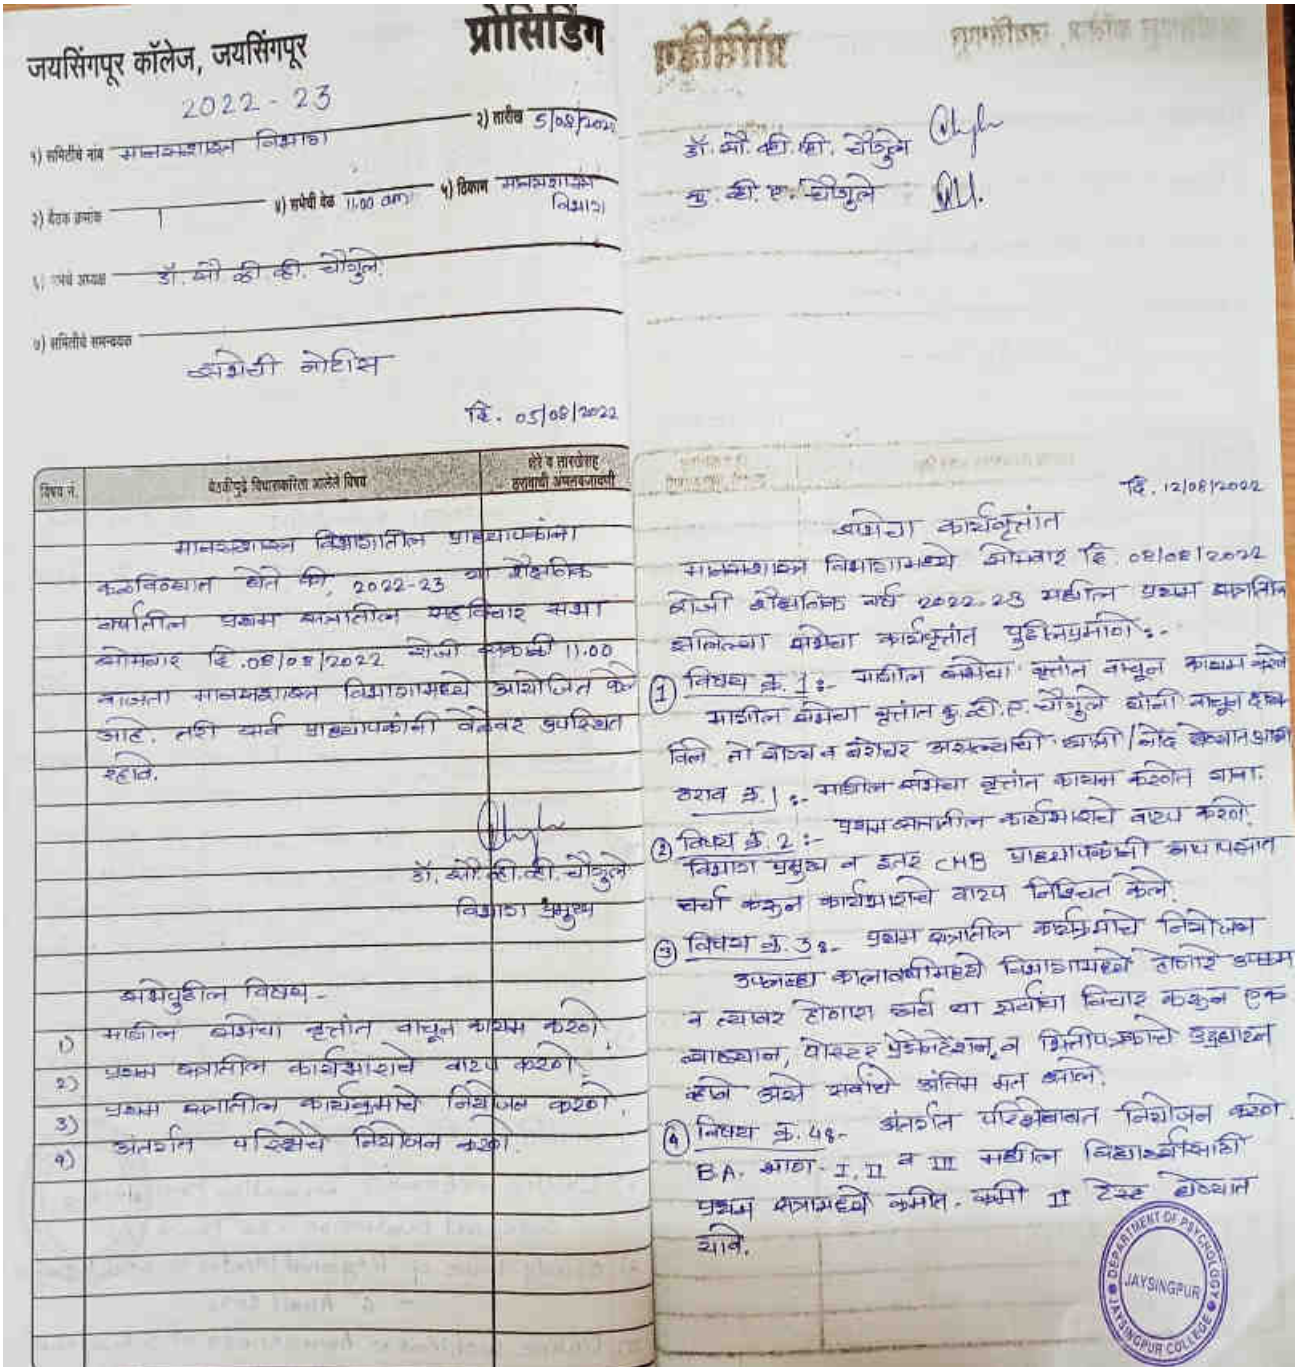 प्रोसिडिंग
जयसिंगपूर कॉलेज, जयसिंगपूर
2022-23
१) समितीचे नांव मानसशास्त्र विभाग
२) तारीख 5/08/2022
३) बैठक क्रमांक 1
४) सभेची वेळ 11.00 am
५) ठिकाण मानसशास्त्र विभाग
६) सभेचे अध्यक्ष डॉ. सौ व्ही. व्ही. चौगुले.
७) समितीचे समन्वयक
सभेची नोटीस
दि. 05/08/2022
विषय नं.
बैठकीपुढे विचाराकरिता आलेले विषय
शेरे व तारखेसह
ठरावाची अंमलबजावणी
मानसशास्त्र विभागातील प्राध्यापकांना
कळविण्यात येते की, 2022-23 या शैक्षणिक
वर्षातील प्रथम सत्रातील सहविचार सभा
सोमवार दि. 08/08/2022 रोजी सकाळी 11.00
वाजता मानसशास्त्र विभागामध्ये आयोजित केले
आहे. तरी सर्व प्राध्यापकांनी वेळेवर उपस्थित
रहावे.
डॉ. सौ. व्ही. व्ही. चौगुले
विभाग प्रमुख
सभेपुढील विषय -
1) मागील सभेचा वृत्तांत वाचून कायम करणे.
2) प्रथम सत्रातील कार्यभाराचे वाटप करणे.
3) प्रथम सत्रातील कार्यक्रमाचे नियोजन करणे.
4) अंतर्गत परिक्षेचे नियोजन करणे.
डॉ. सौ. व्ही. व्ही. चौगुले
कु. व्ही. ए. चौगुले
दि. 12/08/2022
सभेचा कार्यवृत्तांत
मानसशास्त्र विभागामध्ये सोमवार दि. 08/08/2022
रोजी शैक्षणिक वर्ष 2022-23 मधील प्रथम सत्रातील
झालेल्या सभेचा कार्यवृत्तांत पुढीलप्रमाणे :-
① विषय क्र. 1 :- मागील सभेचा वृत्तांत वाचून कायम करणे
मागील सभेचा वृत्तांत कु. व्ही. ए. चौगुले यांनी वाचून दाख
विले. तो योग्य व बरोबर असल्याची / नोंद घेण्यात आली
ठराव क्र. 1 :- मागील सभेचा वृत्तांत कायम करणेत आला.
② विषय क्र. 2 :- प्रथम सत्रातील कार्यभाराचे वाटप करणे.
विभाग प्रमुख व इतर CHB प्राध्यापकांनी
चर्चा करून कार्यभाराचे वाटप निश्चित केले.
③ विषय क्र. 3 :- प्रथम सत्रातील कार्यक्रमाचे नियोजन
उपलब्ध कालावधीमध्ये विभागामध्ये होणारे उपक्रम
व त्यावर होणारा खर्च या सर्वांचा विचार करून एक
व्याख्यान, पोस्टर प्रेझेंटेशन, व भित्तीपत्रकाचे उद्घाटन
व्हावे असे सर्वांचे अंतिम मत झाले.
④ विषय क्र. 4 :- अंतर्गत परिक्षेबाबत नियोजन करणे.
B.A. भाग - I, II व III मधील विद्यार्थ्यांसाठी
प्रथम सत्रामध्ये कमीत. कमी II टेस्ट घेण्यात
यावे.
DEPARTMENT OF PSYCHOLOGY
JAYSINGPUR
JAYSINGPUR COLLEGE